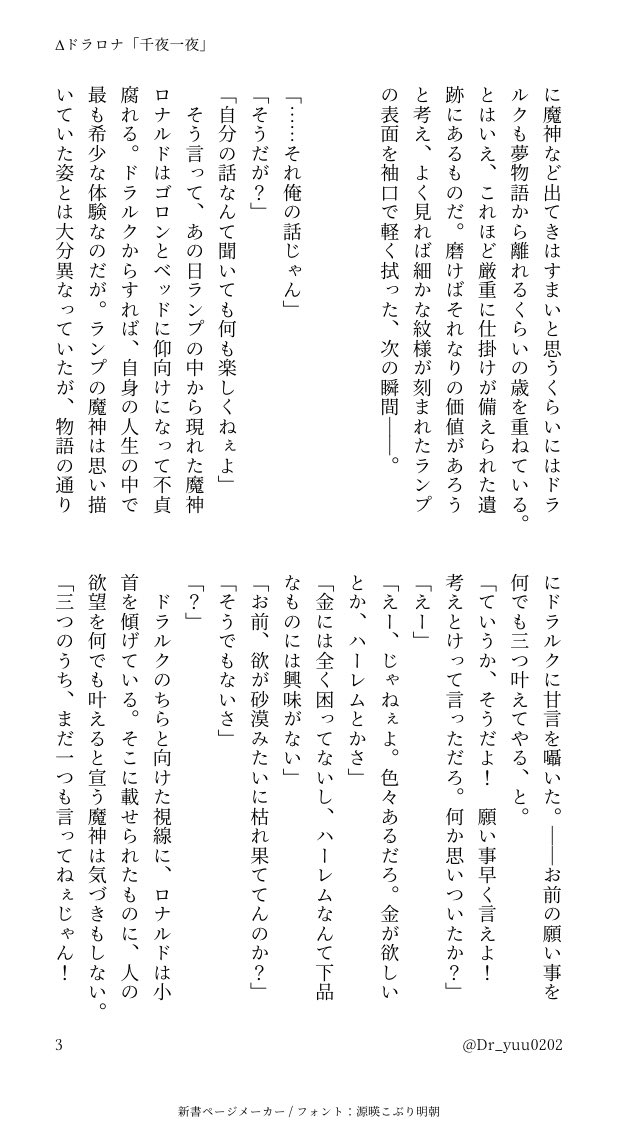 Δドラロナ「千夜一夜」
に魔神など出てきはすまいと思うくらいにはドラ
ルクも夢物語から離れるくらいの歳を重ねている。
とはいえ、これほど厳重に仕掛けが備えられた遺
跡にあるものだ。磨けばそれなりの価値があろう
と考え、よく見れば細かな紋様が刻まれたランプ
の表面を袖口で軽く拭った、次の瞬間――。
「……それ俺の話じゃん」
「そうだが？」
「自分の話なんて聞いても何も楽しくねぇよ」
　そう言って、あの日ランプの中から現れた魔神
ロナルドはゴロンとベッドに仰向けになって不貞
腐れる。ドラルクからすれば、自身の人生の中で
最も希少な体験なのだが。ランプの魔神は思い描
いていた姿とは大分異なっていたが、物語の通り
にドラルクに甘言を囁いた。――お前の願い事を
何でも三つ叶えてやる、と。
「ていうか、そうだよ！　願い事早く言えよ！
考えとけって言っただろ。何か思いついたか？」
「えー」
「えー、じゃねぇよ。色々あるだろ。金が欲しい
とか、ハーレムとかさ」
「金には全く困ってないし、ハーレムなんて下品
なものには興味がない」
「お前、欲が砂漠みたいに枯れ果ててんのか？」
「そうでもないさ」
「？」
　ドラルクのちらと向けた視線に、ロナルドは小
首を傾げている。そこに載せられたものに、人の
欲望を何でも叶えると宣う魔神は気づきもしない。
「三つのうち、まだ一つも言ってねぇじゃん！
3
@Dr_yuu0202
新書ページメーカー / フォント：源暎こぶり明朝